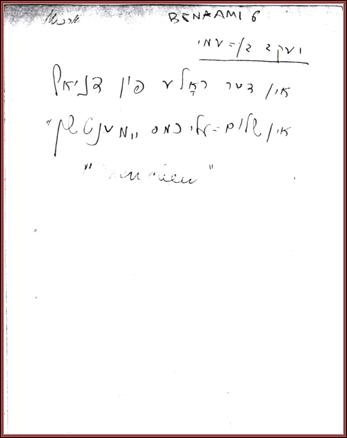 BENAAMI 6
יעקב בן=עמי
אין דער ראָלע פון דניאל
אין שלום=עליכמס "מענטשן"